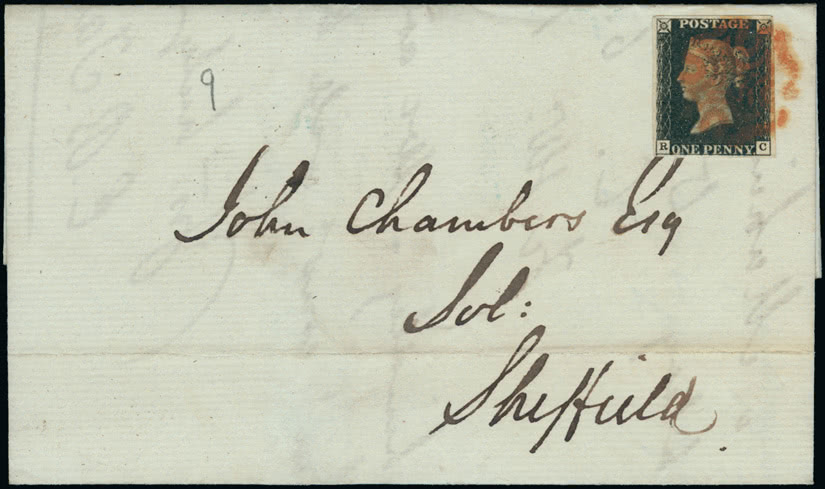 POSTAGE
R C
ONE PENNY.
9
John Chambers Esq
Sol:
Sheffield